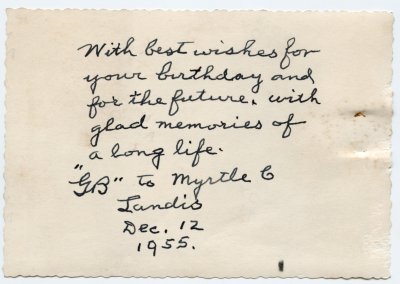 With best wishes for
your birthday and
for the future, with
glad memories of
a long life.
"GB" to Myrtle C
Landis
Dec. 12
1955.